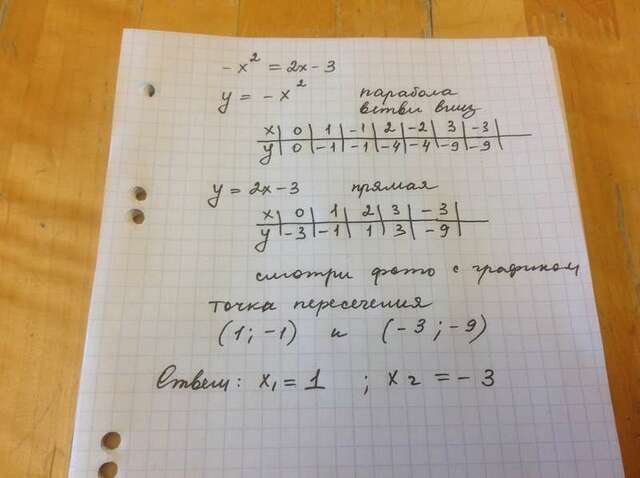 -x² = 2x-3
y = -x² парабола
ветви вниз
x | 0 | 1 | -1 | 2 | -2 | 3 | -3 |
y | 0 | -1 | -1 | -4 | -4 | -9 | -9 |
y = 2x-3 прямая
x | 0 | 1 | 2 | 3 | -3 |
y | -3 | -1 | 1 | 3 | -9 |
смотри фото с графиком
точка пересечения
(1; -1) и (-3; -9)
Ответ: x₁ = 1 ; x₂ = -3